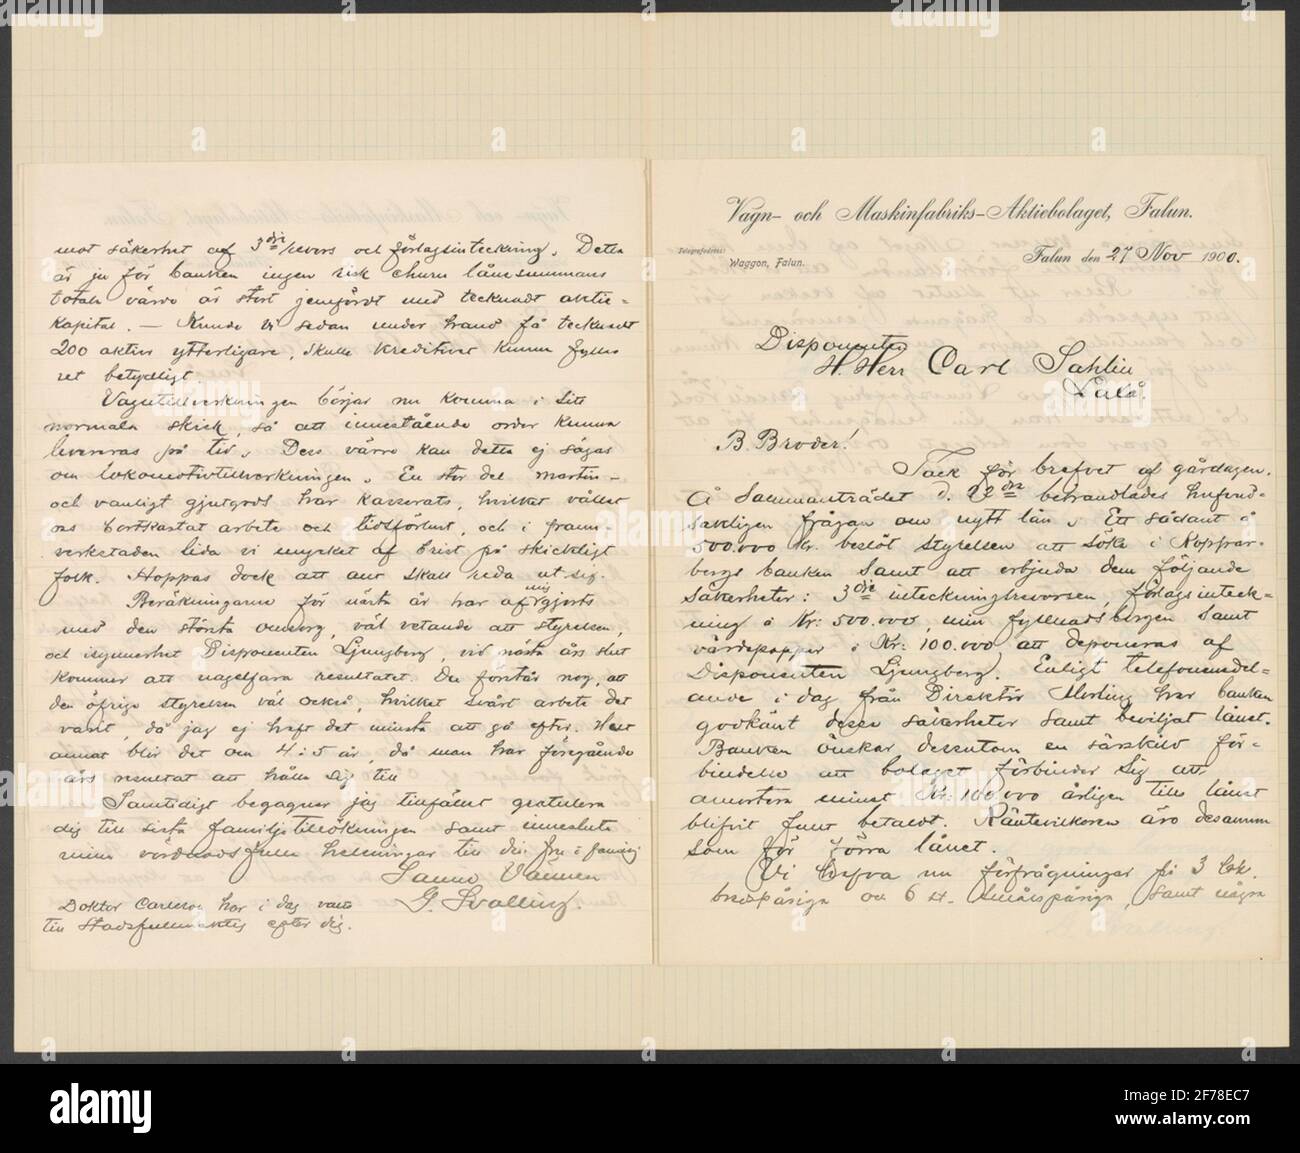 Vagn- och Maskinfabriks-Aktiebolaget, Falun.
Telegrafadress:
Waggon, Falun.
Falun den 27 Nov 1900.
Disponenten
H. Herr Carl Sahlin
Laxå.
B. Broder!
Tack för brefvet af gårdagen.
Å sammanträdet d. 22dre behandlades hufvud-
sakligen frågan om nytt lån. Ett sådant å
500.000 Kr. beslöt styrelsen att söka i Kopparr-
bergs banken samt att erbjuda dem följande
säkerheter: 3die inteckningsreversen, förlagsinteck-
ning å Kr: 500.000, min fyllnadsborgen samt
värdepapper i Kr: 100.000 att deponeras af
Disponenten Ljungberg. Enligt telefonmeddel-
ande i dag från Direktör har banken
godkänt dessa säkerheter samt beviljat lånet.
Banken önskar dessutom en särskild för-
bindelse att bolaget förbinder sig att
amortera minst Kr: 100.000 årligen tills lånet
blifvit fullt betaldt. Räntevilkoren äro desamma
som för förra lånet.
Vi hafva nu förfrågningar på 3 Lok.
bredspåriga och 6 st. smalspåriga, samt några
mot säkerhet af 3die revers och förlagsinteckning. Detta
är ju för banken ingen risk ehuru lånesummans
totala värde är stort jemfördt med tecknadt aktie-
kapital. — Kunde vi sedan under hand få tecknadt
200 aktier ytterligare, skulle kreditivet kunna fyllas
ret betydligt.
Vagntillverkningen börjar nu komma i sitt
normala skick, så att innestående order kunna
levereras på tid. Dess värre kan detta ej sägas
om lokomotivtillverkningen. En stor del martin-
och vanligt gjutgods har kasserats, hvilket vållat
oss bortkastat arbete och tidsförlust, och i pann-
verkstaden lida vi mycket af brist på skickligt
folk. Hoppas dock att allt skall reda ut sig.
Beräkningarna för nästa år har af mig gjorts
med den största omsorg, väl vetande att styrelsen,
och isynnerhet Disponenten Ljungberg, vid nästa års slut
kommer att nagelfara resultatet. Du förstår nog, att
den öfriga styrelsen väl också, hvilket svårt arbete det
varit, då jag ej haft det minsta att gå efter. Helt
annat blir det om 4 à 5 år, då man har föregående
års resultat att hålla sig till.
Samtidigt begagnar jag tillfället gratulera
dig till sista familjetillökningen samt innesluta
mina vördnadsfulla helsningar till din fru o familj
Sanne Vännen
G. Svalling.
Doktor Carlsson har i dag valts
till Stadsfullmäktig efter dig.
alamy
Image ID: 2F78EC7
www.alamy.com